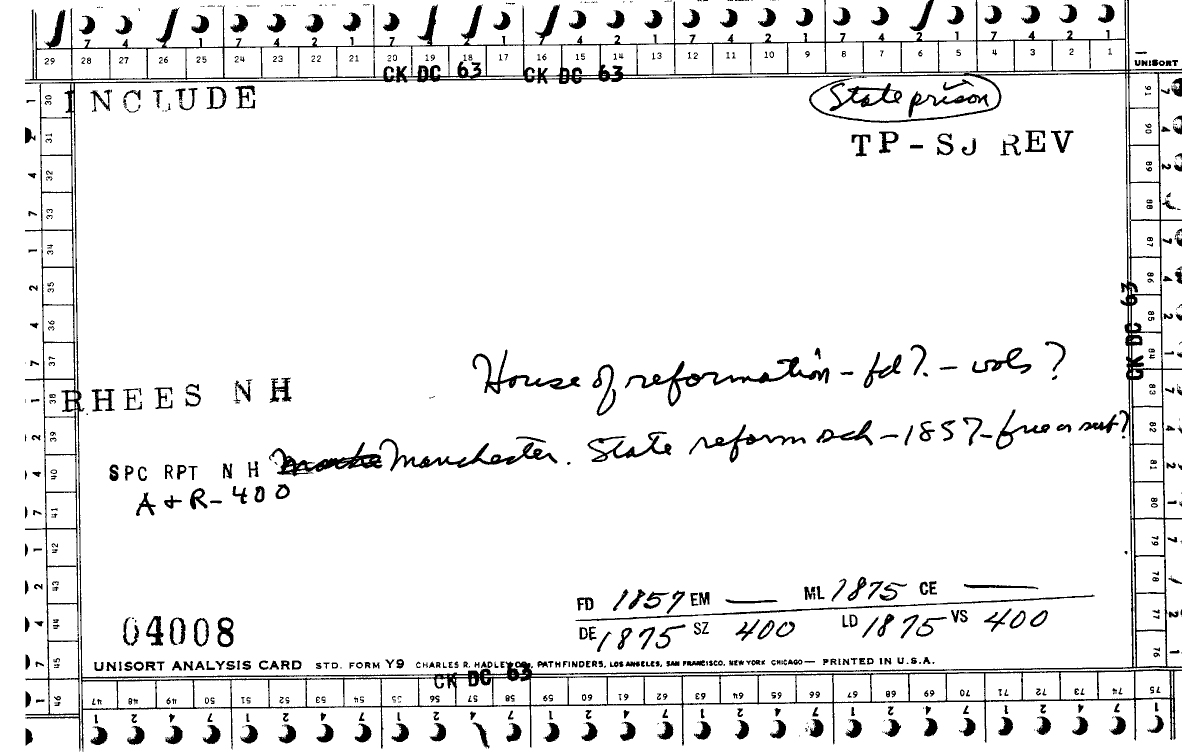 7 4 2 1 7 4 2 1 7 4 2 1 7 4 2 1 7 4 2 1 7 4 2 1
29 28 27 26 25 24 23 22 21 20 19 18 17 16 15 14 13 12 11 10 9 8 7 6 5 4 3 2 1
UNISORT
CK DC 63 CK DC 63
INCLUDE
State prison
TP-SJ REV
House of reformation - fd? - vols?
RHEES N H
Manchester. State reform sch - 1857 - free or sub?
SPC RPT N H
A + R - 400
CK DC 63
FD 1857 EM — ML 1875 CE —
DE 1875 SZ 400 LD 1875 VS 400
04008
UNISORT ANALYSIS CARD STD. FORM Y9 CHARLES R. HADLEY CO., PATHFINDERS, LOS ANGELES, SAN FRANCISCO, NEW YORK CHICAGO — PRINTED IN U.S.A.
CK DC 63
30 31 32 33 34 35 36 37 38 39 40 41 42 43 44 45 46
47 48 49 50 51 52 53 54 55 56 57 58 59 60 61 62 63 64 65 66 67 68 69 70 71 72 73 74 75
76 77 78 79 80 81 82 83 84 85 86 87 88 89 90 91